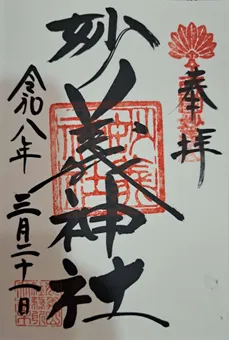 奉拝
妙義神社
令和八年
三月二十一日